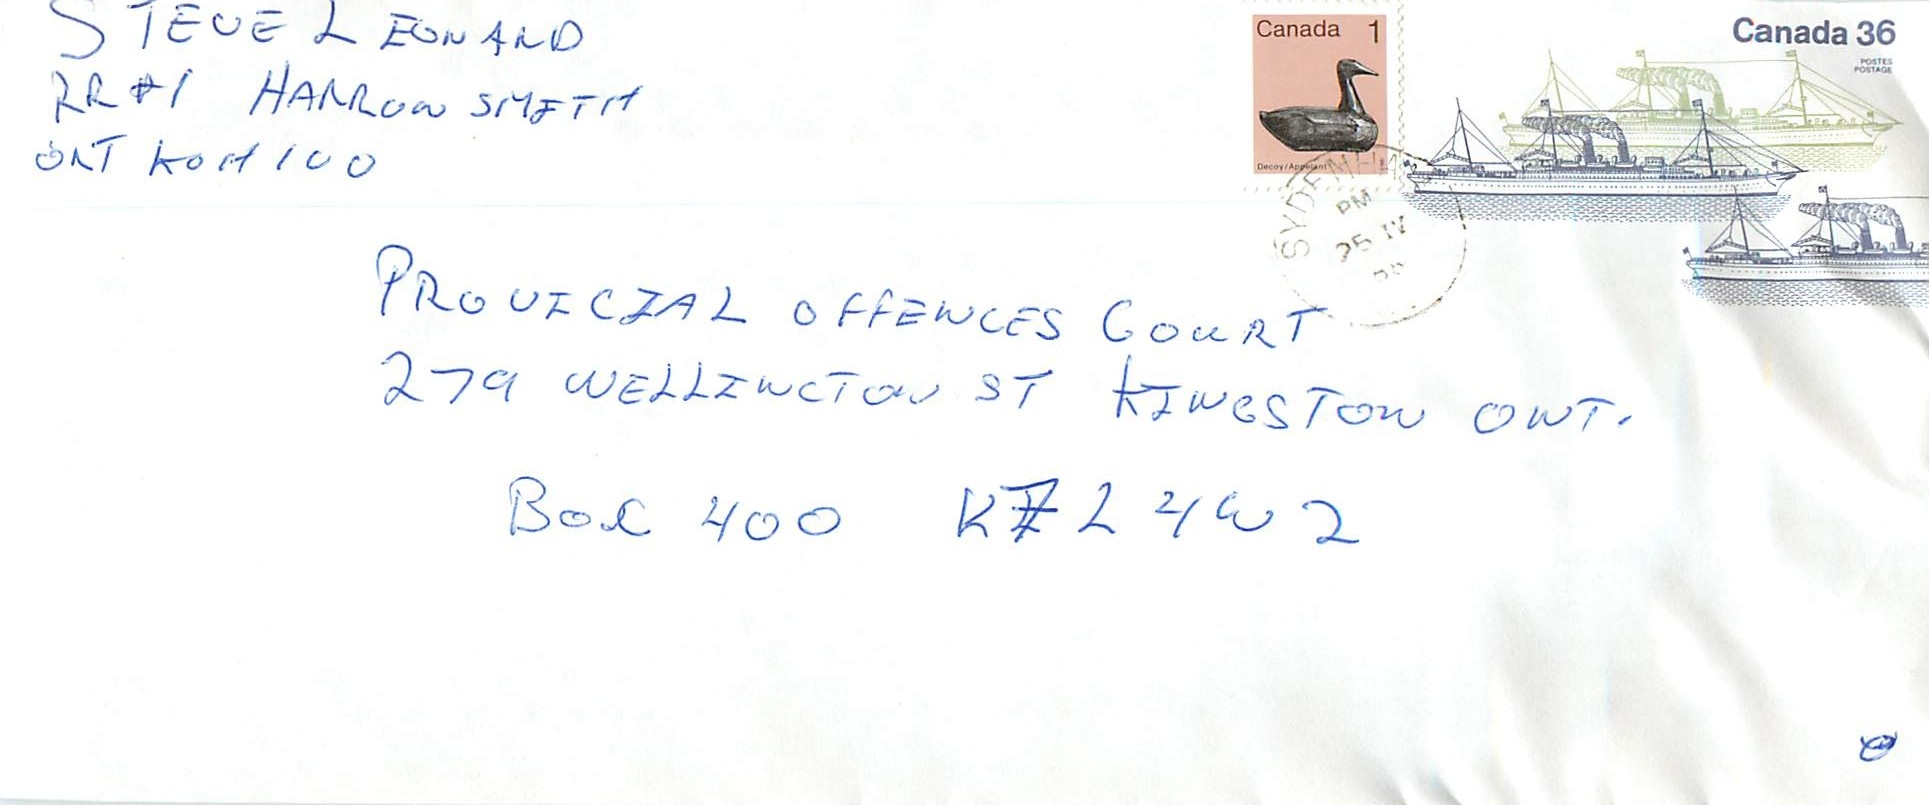 STEVE LEONARD
RR#1 HARROWSMITH
ONT K0H 1V0
Canada 1
Decoy/Appelant
Canada 36
POSTES
POSTAGE
SYDENHAM
PM
25 IV
PROVICIAL OFFENCES COURT
279 WELLINGTON ST KINGSTON ONT.
Box 400 K7L 4W2